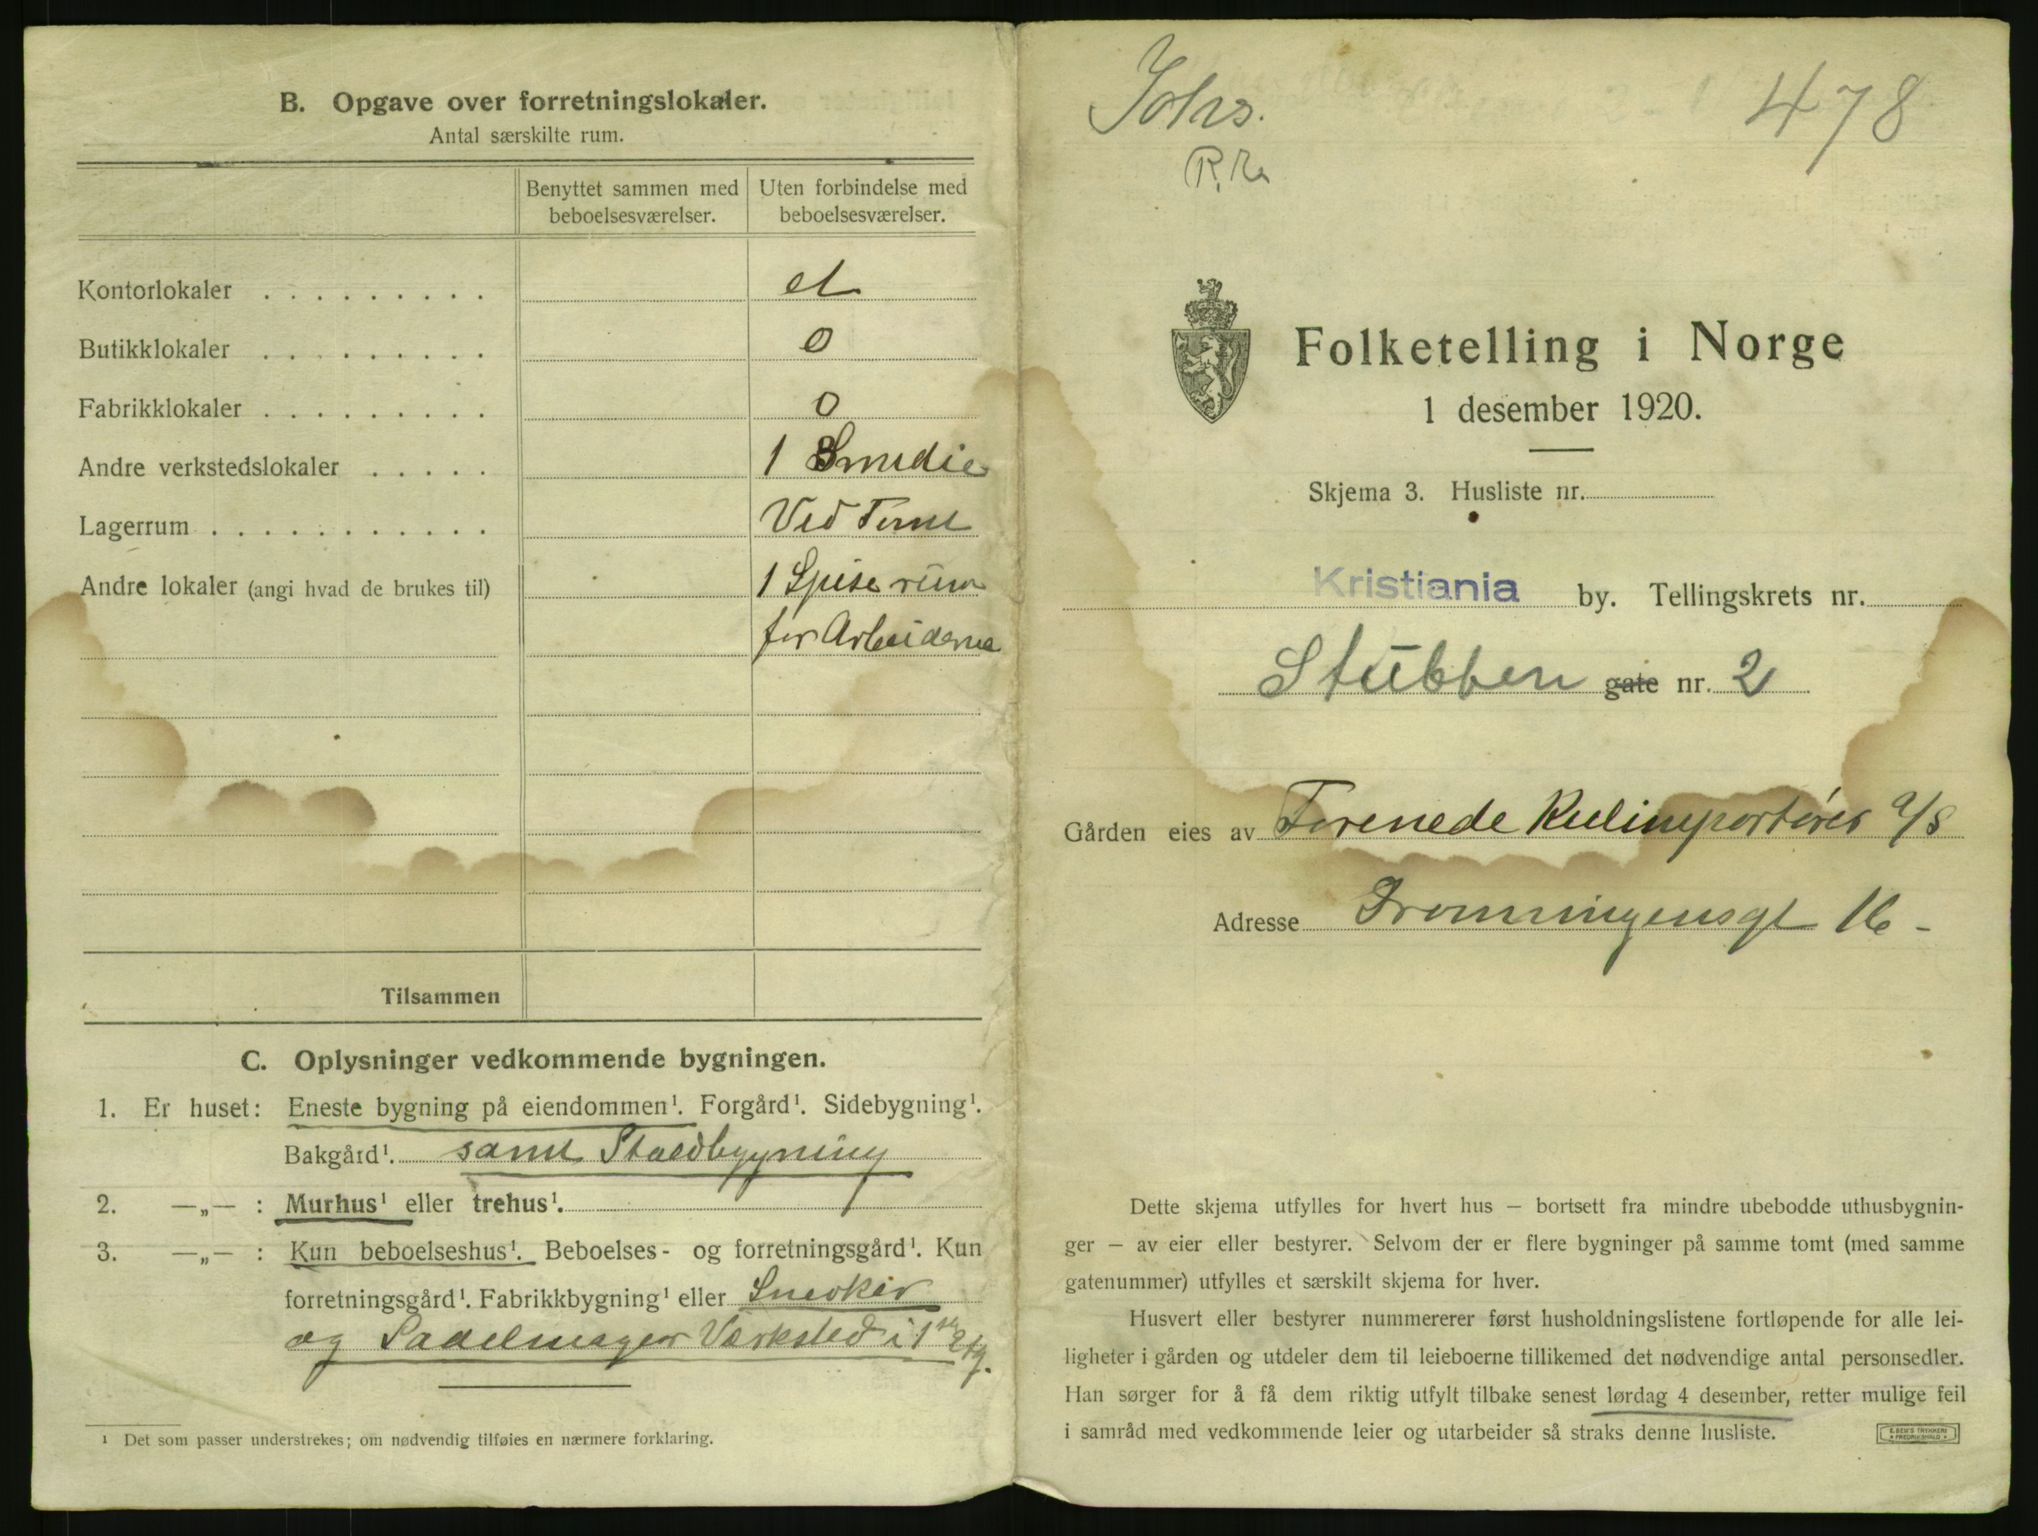 B. Opgave over forretningslokaler.
Antal særskilte rum.
Benyttet sammen med beboelsesværelser.
Uten forbindelse med beboelsesværelser.
Kontorlokaler . . . . . . . . . et
Butikklokaler . . . . . . . . . 0
Fabrikklokaler . . . . . . . . 0
Andre verkstedslokaler . . . . . 1 Smedie
Lagerrum . . . . . . . . . . . Ved Tomt
Andre lokaler (angi hvad de brukes til) 1 Spise rum
for Arbeiderne
Tilsammen
C. Oplysninger vedkommende bygningen.
1. Er huset: Eneste bygning på eiendommen¹. Forgård¹. Sidebygning¹.
Bakgård¹. samt Staldbygning
2. —„— : Murhus¹ eller trehus¹.
3. —„— : Kun beboelseshus¹. Beboelses- og forretningsgård¹. Kun
forretningsgård¹. Fabrikkbygning¹ eller Snedker
og Sadelmager Værksted i 1
¹ Det som passer understrekes; om nødvendig tilføies en nærmere forklaring.
Johs.
478
Folketelling i Norge
1 desember 1920.
Skjema 3. Husliste nr.
Kristiania by. Tellingskrets nr.
Stubben gate nr. 2
Gården eies av Forenede Kulimportører A/S
Adresse Dronningensgt 16 -
Dette skjema utfylles for hvert hus — bortsett fra mindre ubebodde uthusbygnin-
ger — av eier eller bestyrer. Selvom der er flere bygninger på samme tomt (med samme
gatenummer) utfylles et særskilt skjema for hver.
Husvert eller bestyrer nummererer først husholdningslistene fortløpende for alle lei-
ligheter i gården og utdeler dem til leieboerne tillikemed det nødvendige antal personsedler.
Han sørger for å få dem riktig utfylt tilbake senest lørdag 4 desember, retter mulige feil
i samråd med vedkommende leier og utarbeider så straks denne husliste.